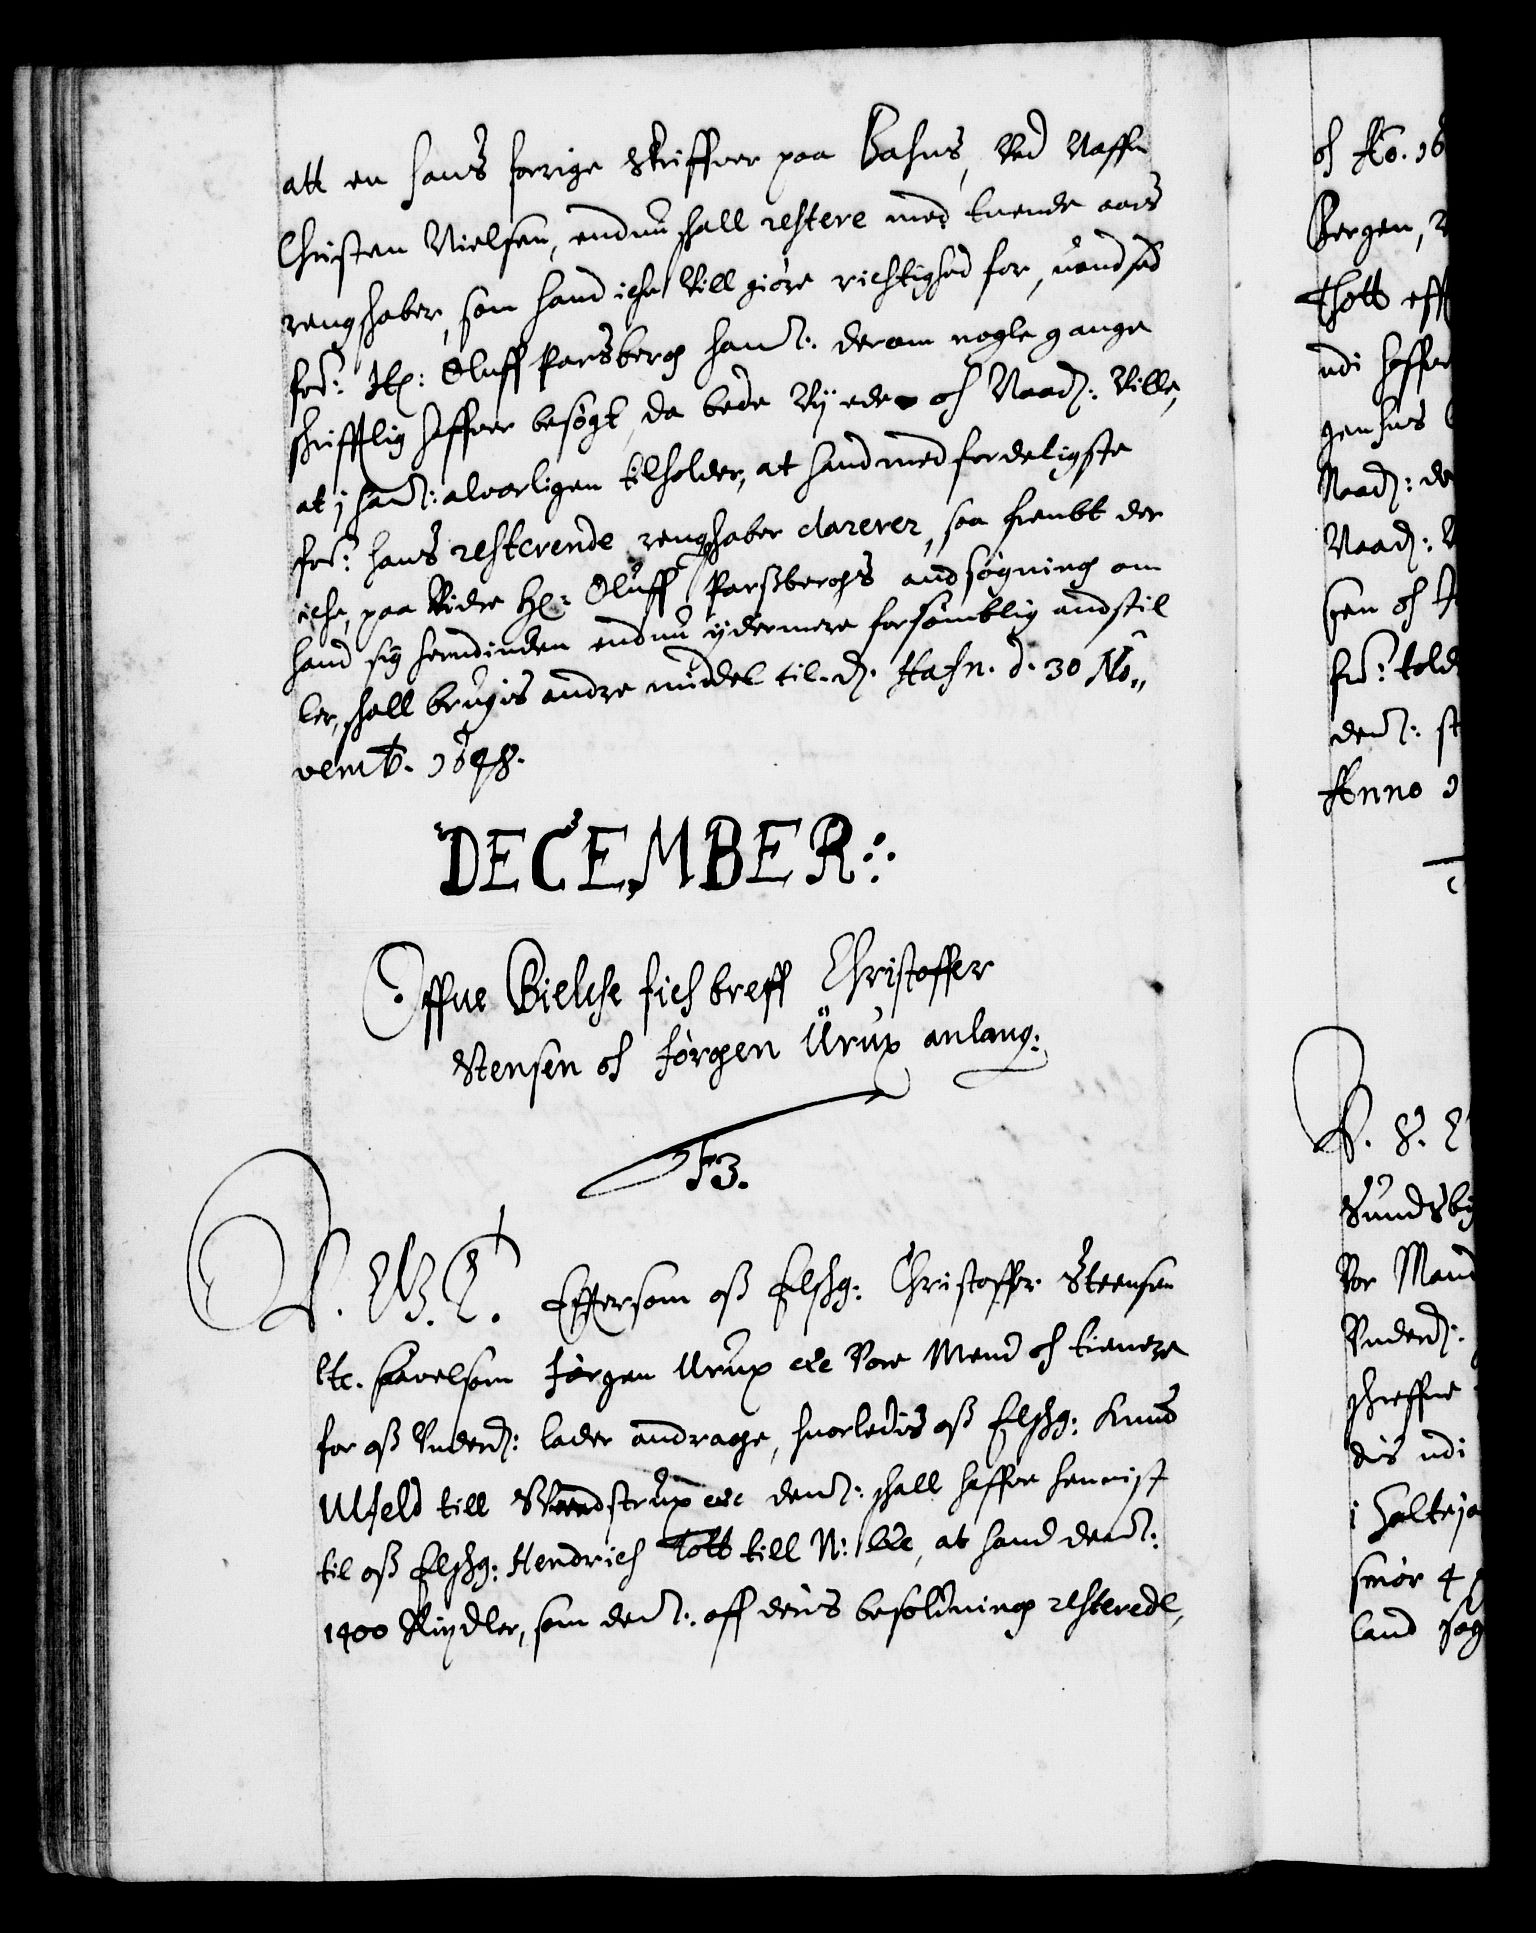 att en hans forrige Skriffver paa Bahus, Ved Naffn
Christen Nielsen, endnu shall restere med tuende aars
rengshaber, som hand iche Vill giøre richtighed for, uandsed
for: H: Oluff Parsberg hannem: derom nogle gange
schrifftlig haffver besøgt, da bede Vy eder och Naad: Ville,
at j hannem: alvorligen tilholder, at hand med forderligste
for: hans resterende rengshaber clarerer, saa frembt der
iche, paa Videre H: Oluff Parsbergs andsøgning om
hand sig herudinden endnu ydermere forsømblig andstil
ler, shall brugis andre middel til. D. Hafn. d. 30 No„
vemb. 1648.
DECEMBER
Offue Bielche fich breff Christoffer
Stensen och Jørgen Urup anlang:
F3.
C. 4. G. T. Efftersom oss Elshg: Christoffer Steensen
etc. saavelsom Jørgen Urup etc Vore Mend och tienere
for oss Underd: lader andrage, huorledis oss Elshg: Knud
Ulfeld till Svendstrup etc dennem: shall haffve henvist
til oss Elshg: Hendrich Tott till N: etc, at hand dennem:
1400 Rixdler, som dennem: aff deris besolding resterede,
och Ao. 16
Bergen,
Thott eff
udi haffver
genhus
Naad: de
Naad:
sen och
for: told
dennem: st
Anno 1
Sundsby
Vor Mand
Underd:
schreffne
dis udi
i
smør 4
land sog